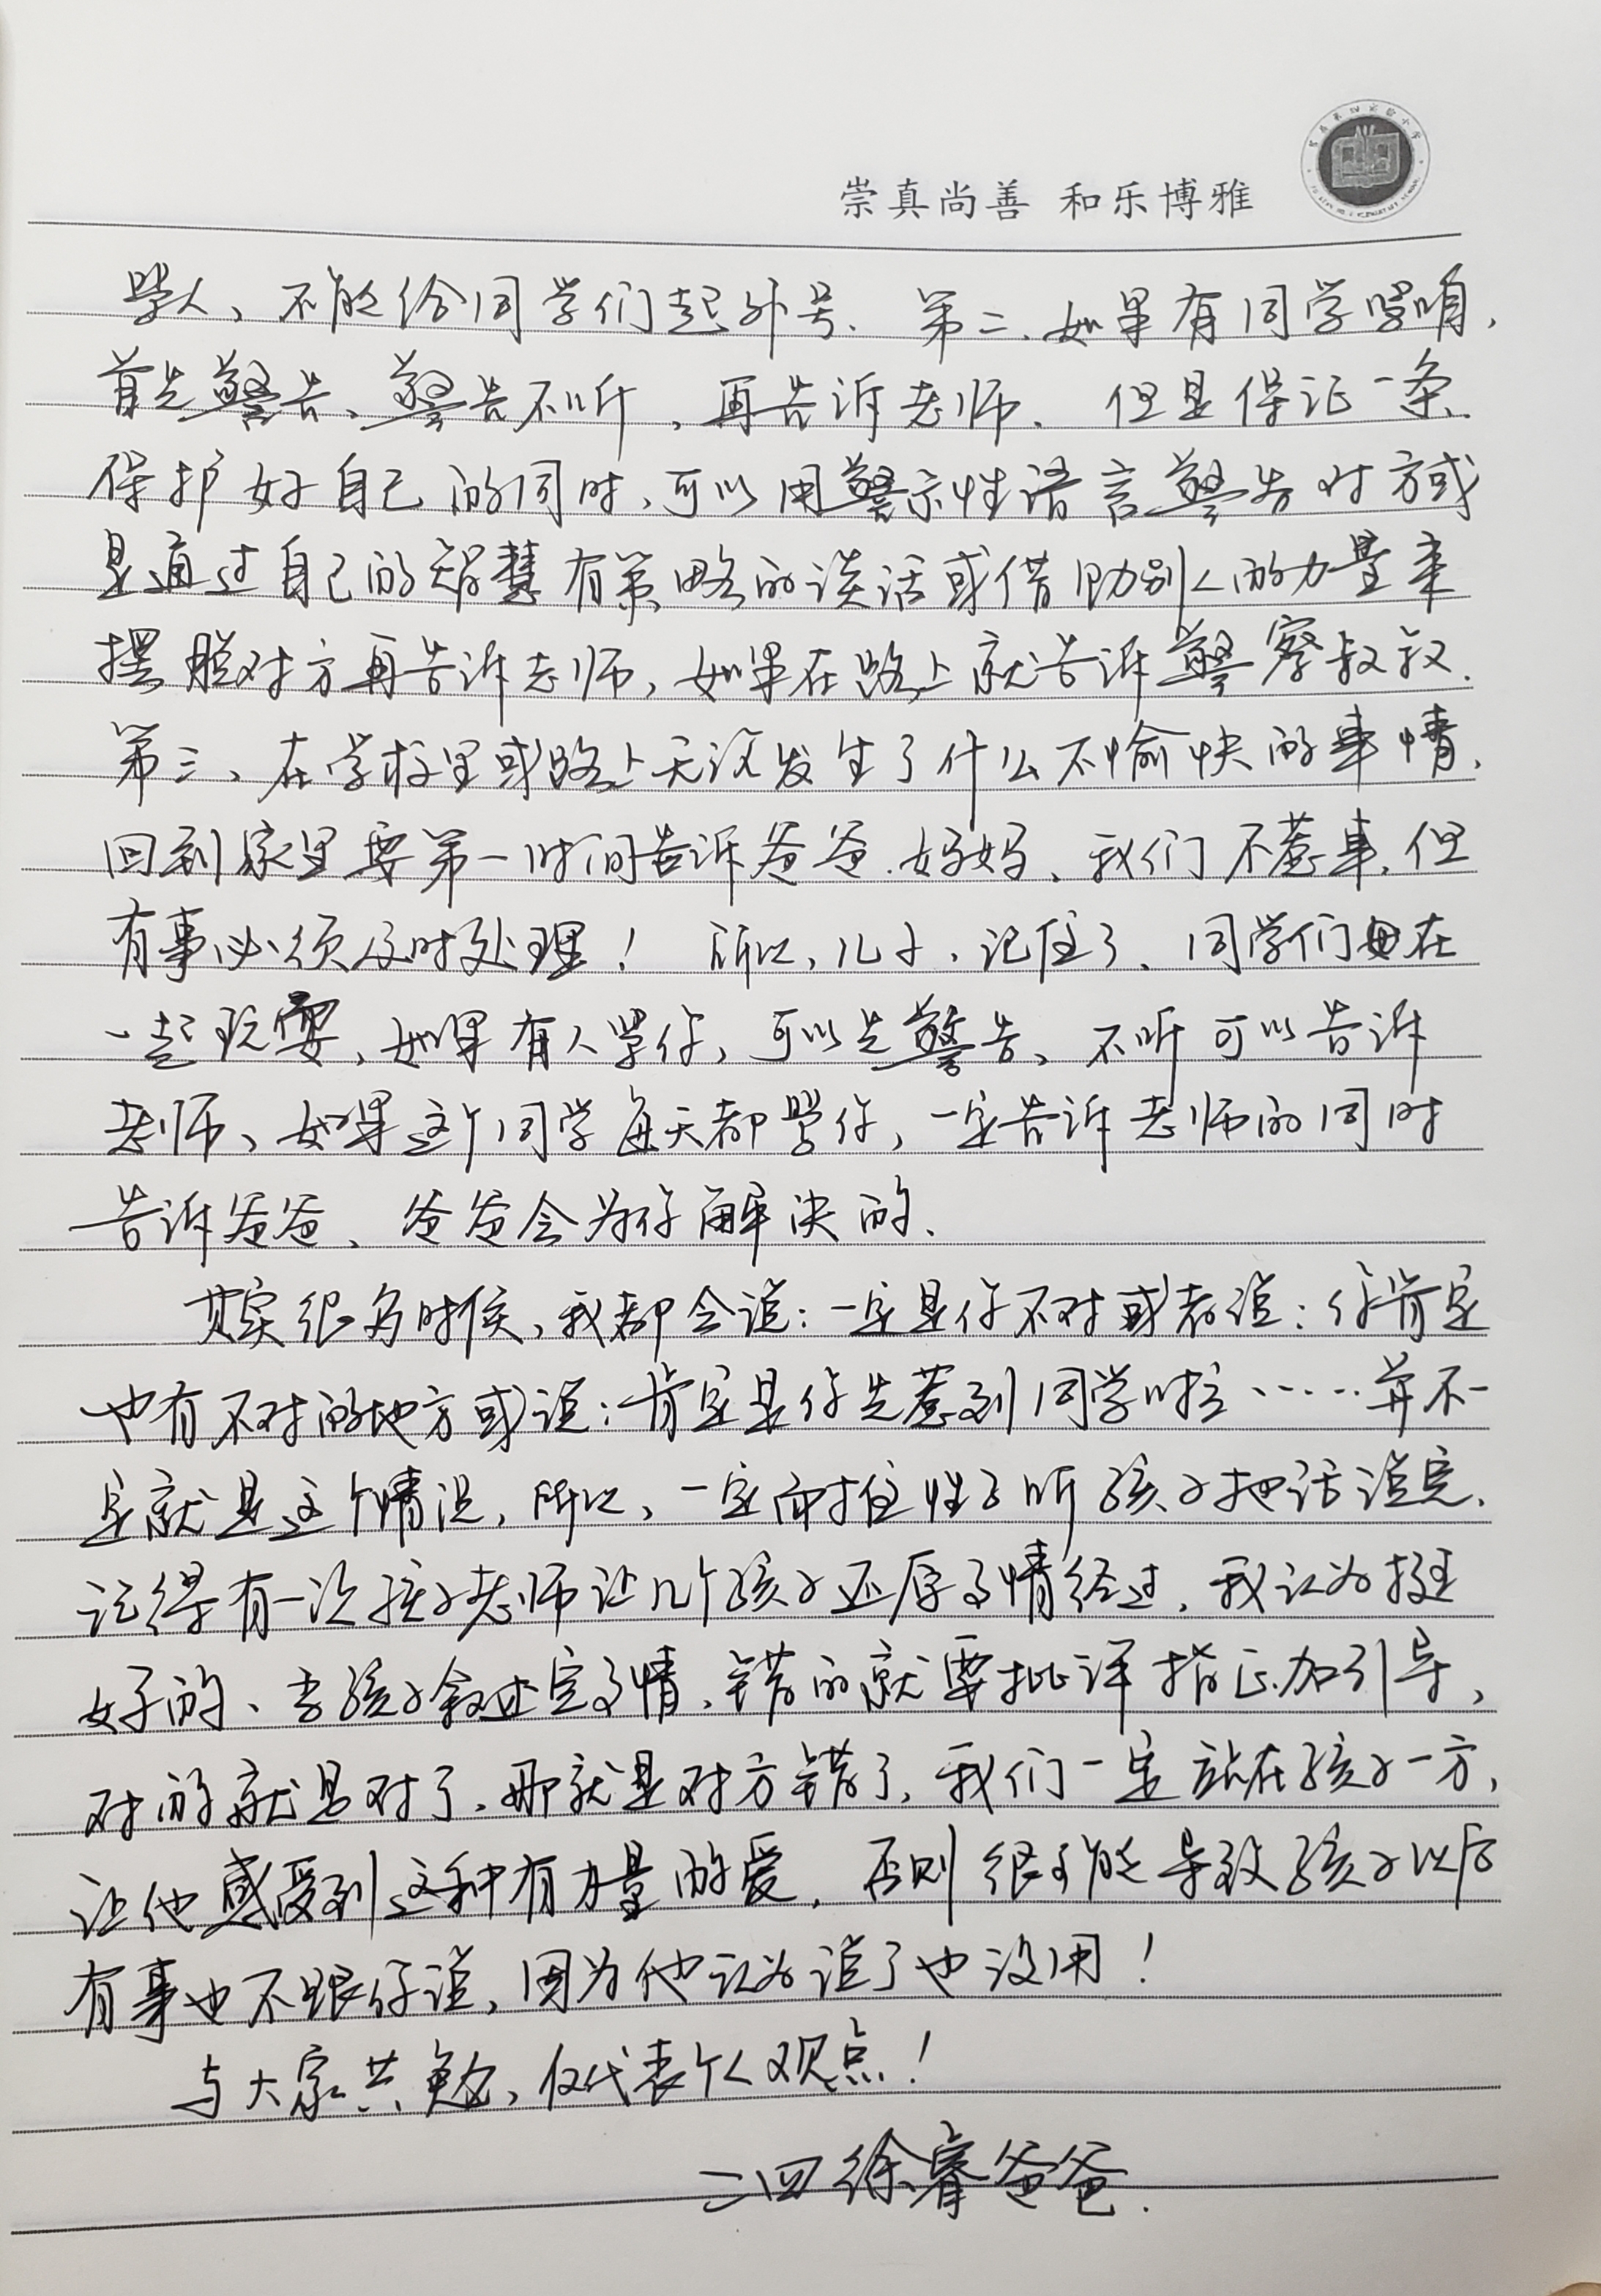 崇真尚善 和乐博雅
人、不能给同学们起外号、第二、如果有同学咱，
首先警告、警告不听，再告诉老师、但是保证一条、
保护好自己的同时，可以用警示性语言警告对方或
是通过自己的智慧有策略的谈话或借助别人的力量来
摆脱对方再告诉老师，如果在路上就告诉警察叔叔．
第三、在学校里或路上无论发生了什么不愉快的事情，
回到家里要第一时间告诉爸爸．妈妈、我们不惹事，但
有事必须及时处理！所以，儿子，记住了、同学们在
一起玩耍，如果有人你，可以先警告、不听可以告诉
老师、如果这个同学每天都你，一定告诉老师的同时
告诉爸爸、爸爸会为你解决的、
其实很多时候，我都会说：一定是你不对或者说：你肯定
也有不对的地方或说：肯定是你先惹到同学啦……并不一
定就是这个情况，所以，一定耐住性子听孩子把话说完、
记得有一次孩子老师让几个孩子还原了情经过，我认为挺
好的、当孩子叙述完了情，错的就要批评指正加引导，
对的就是对了，那就是对方错了，我们一定站在孩子一方，
让他感受到这种有力量的爱，否则很可能导致孩子以后
有事也不跟你说，因为他认为说了也没用！
与大家共勉，仅代表个人观点！
二四徐睿爸爸．